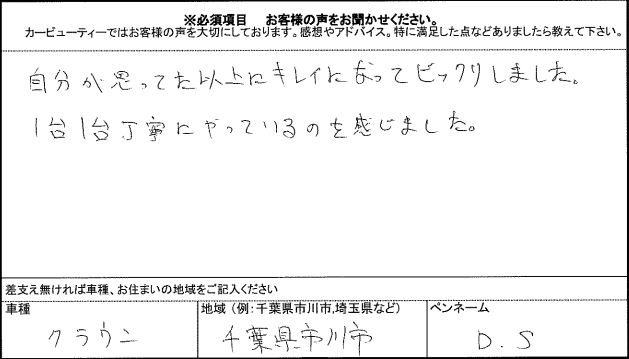 ※必須項目　お客様の声をお聞かせください。
カービューティーではお客様の声を大切にしております。感想やアドバイス。特に満足した点などありましたら教えて下さい。
自分が思ってた以上にキレイになってビックリしました。
1台1台丁寧にやっているのを感じました。
差支え無ければ車種、お住まいの地域をご記入ください
車種　地域（例:千葉県市川市,埼玉県など）　ペンネーム
クラウン　千葉県市川市　D.S